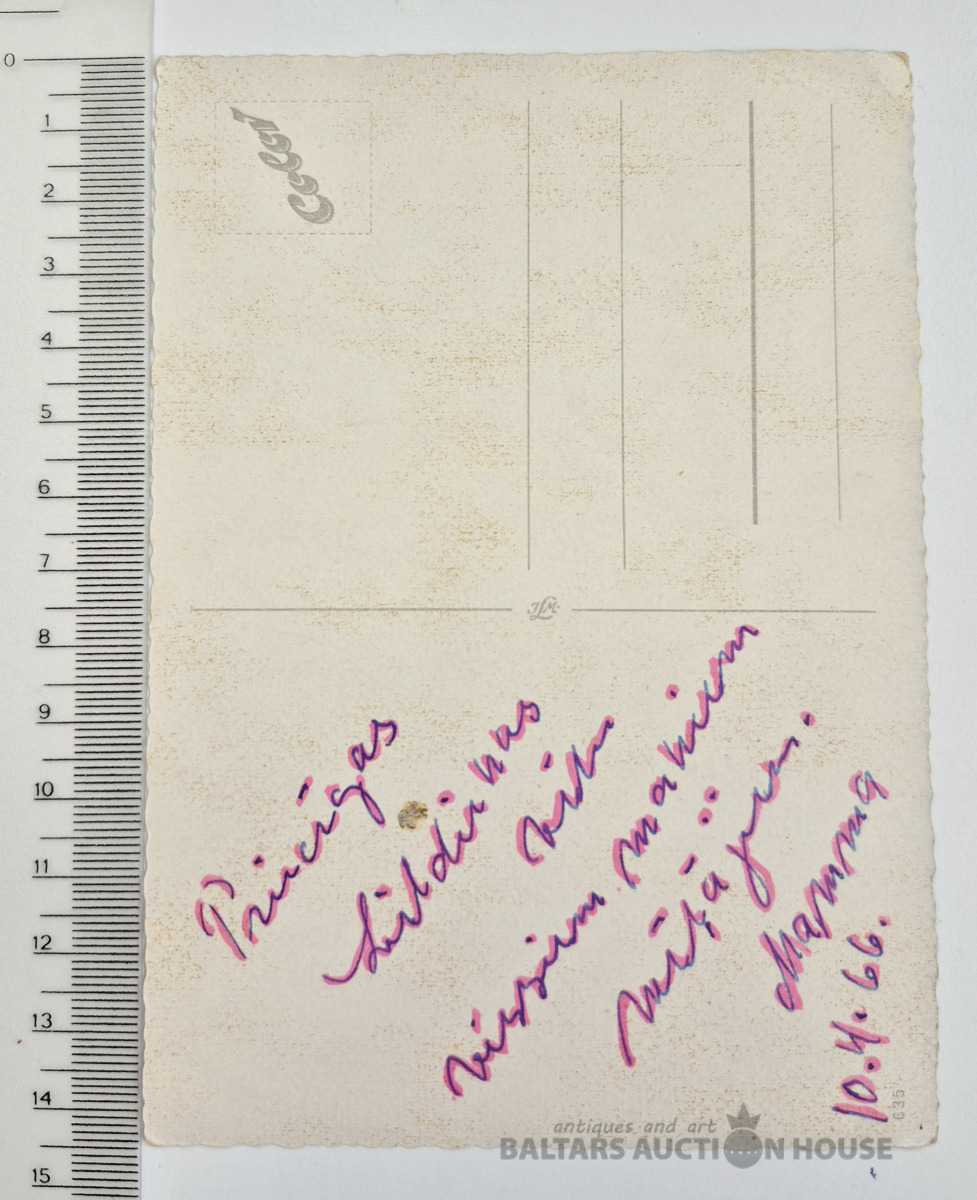 0
1
2
3
4
5
6
7
8
9
10
11
12
13
14
15
Color
JLM
Priecīgas
Lieldienas
visiem maniem
Mamma
10.4.66.
635
antiques and art
BALTARS AUCTION HOUSE